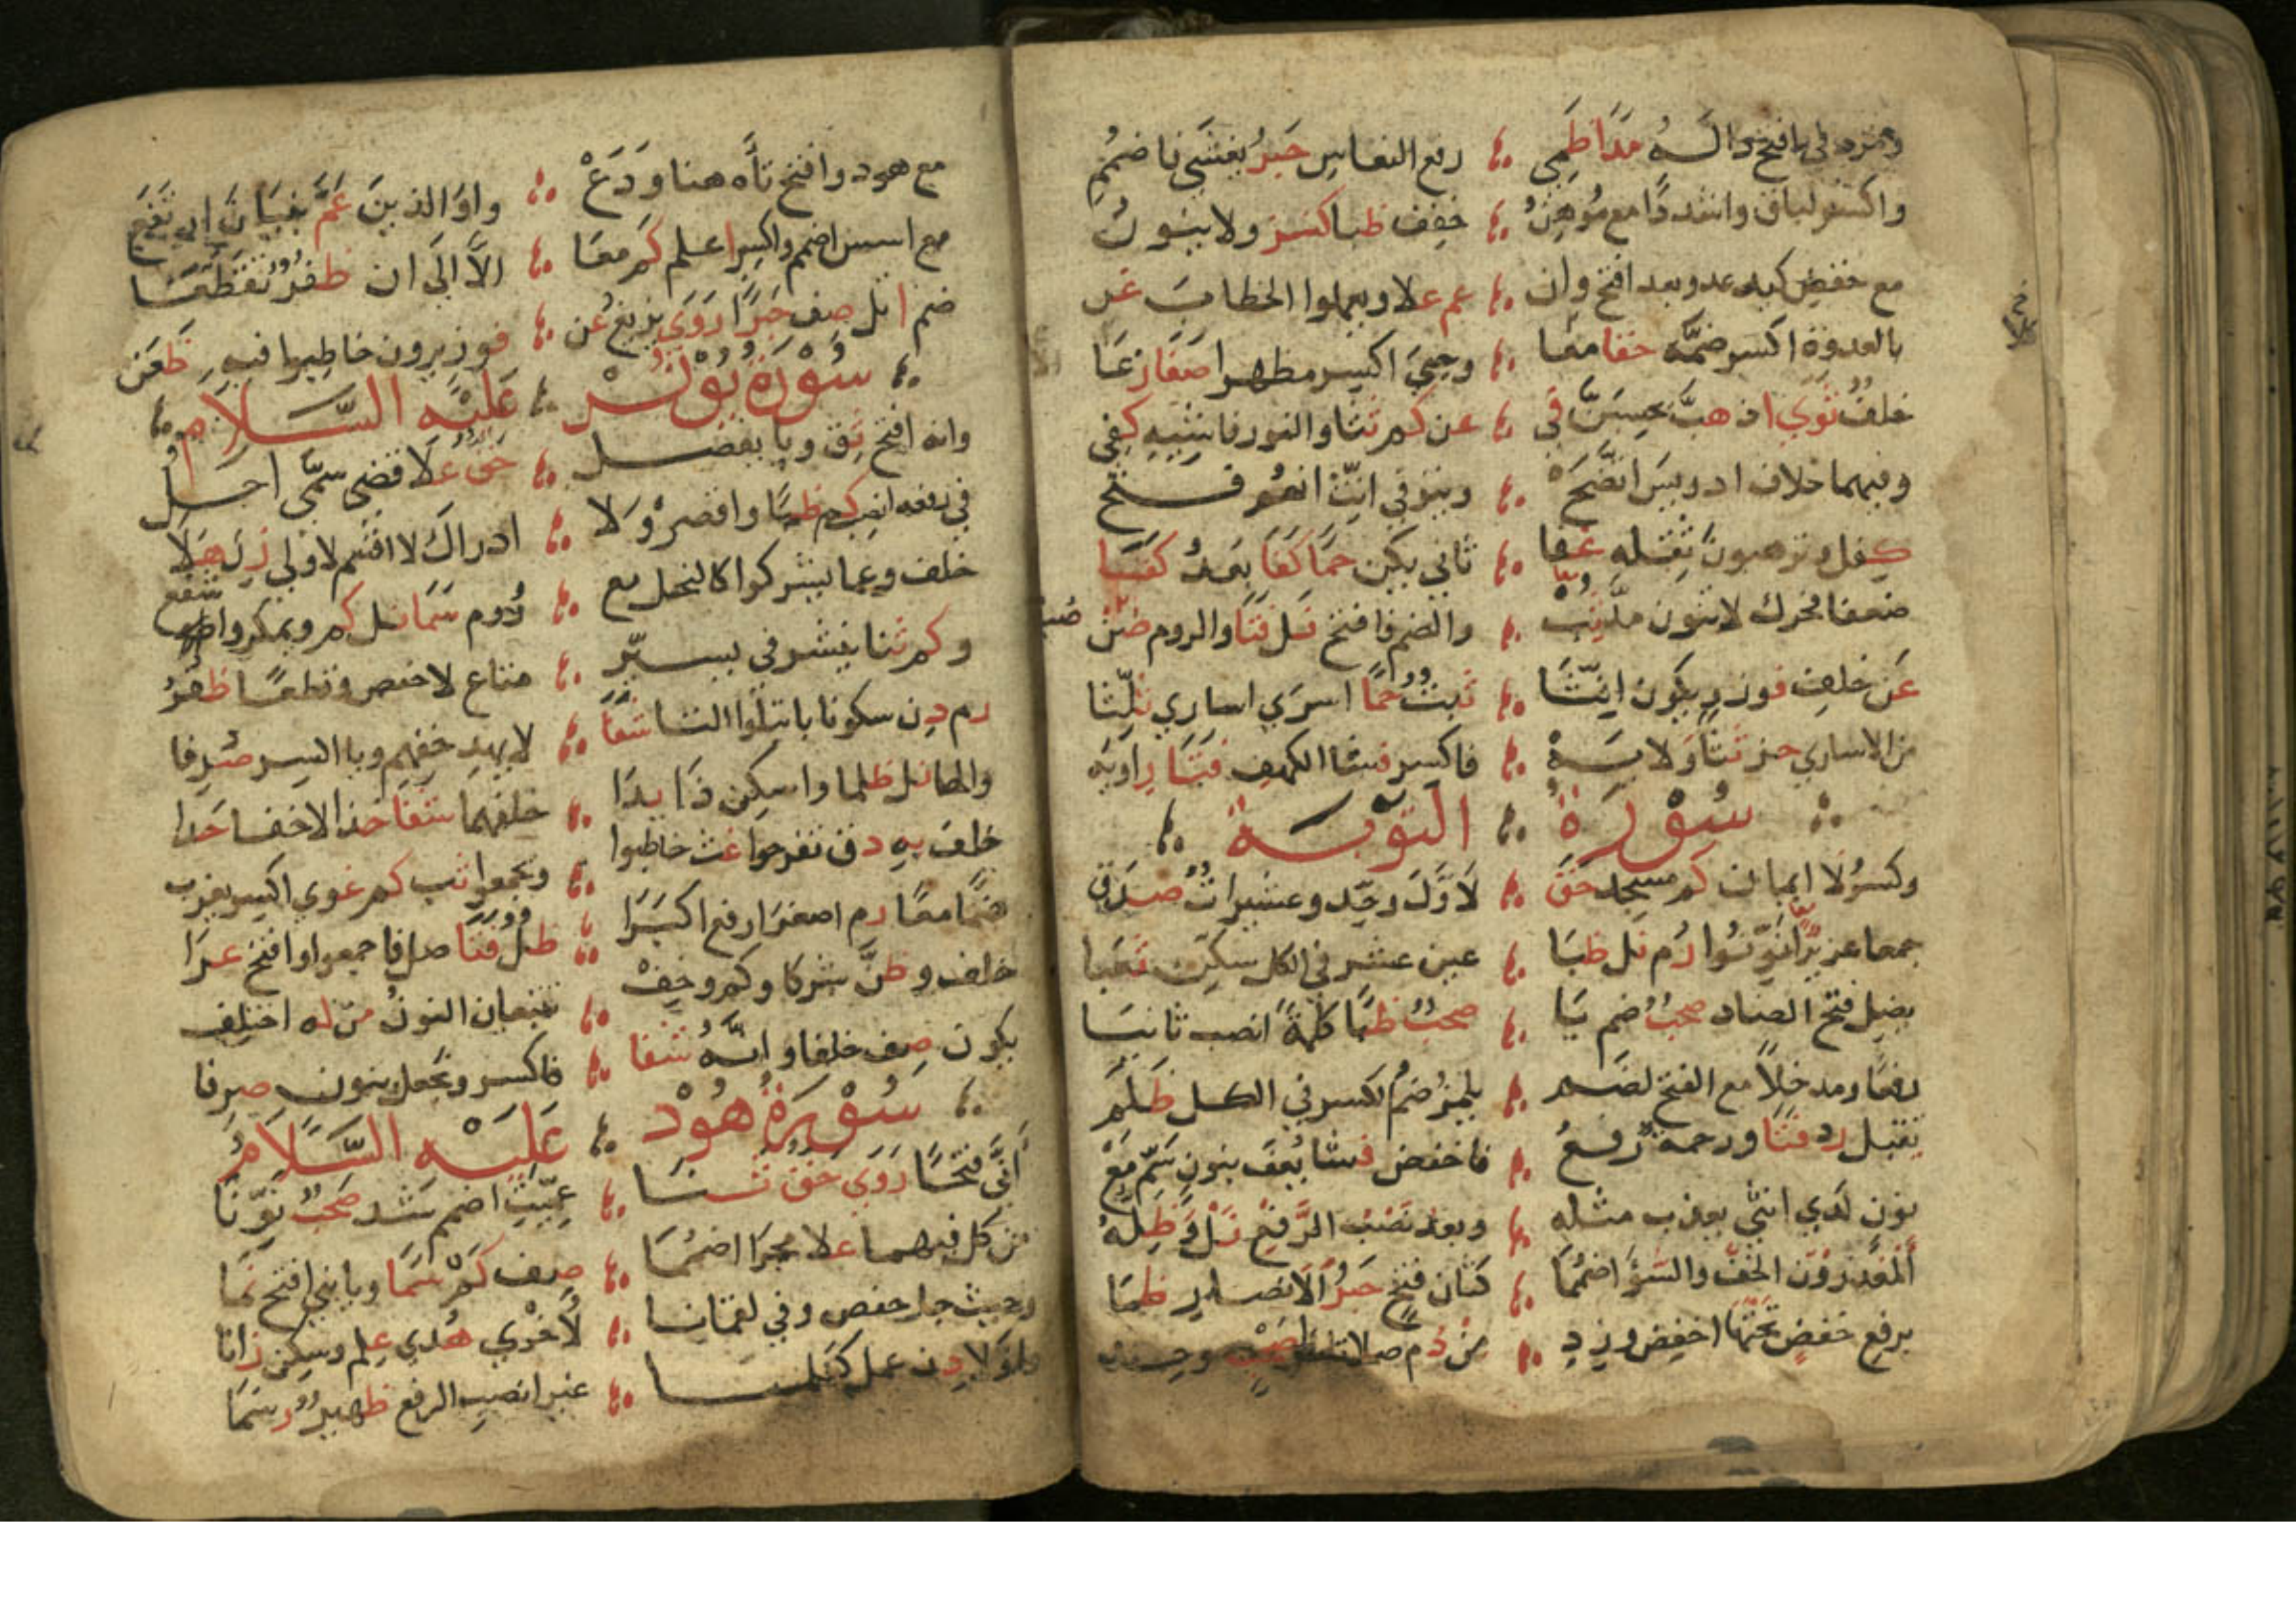 ومردفي افتح داله مدا ظمي رفع النعاس حبر يغشي فاضمم
واكسر لباق واشددا مع موهن خفف ظبا كنز ولا ينون
مع خفض كيد عد وبعد افتح وان عم علا ويعملوا الخطاب غن
بالعدوة اكسر ضمه حقا معا وحيي اكسر مظهرا صفا زعا
خلف ثوي اذ هب يحسبن في عن كم ثنا والنور فاشيه كفي
وفيهما خلاف ادريس اتضح ويتوفي انث انهم فتح
كفل وترهبون ثقله غفا ثاني يكن حما كفا بعد كفا
ضعفا فحرك لا تنون مد ثب والضم فافتح نل فتا والروم صن
عن خلف فوز ويكون انثا ثبت حما اسري اساري ثلثا
من الاساري حز ثنا ولايه فاكسر فشا الكهف فتا راويه
سورة التوبة
وكسر لا ايمان كم مسجد حق لاول وحد وعشيرات صدق
جمعا عزير نونوا رم نل ظبا عين عشر في الكل سكن ثغبا
يضل فتح الضاد صحب ضم يا صحب ظبا كلمة انصب ثانيا
رفعا ومدخلا مع الفتح لضم يلمز ضم الكسر في الكل ظلم
يقبل رد فتا ورحمة رفع فاخفض فشا يعف بنون سم مع
نون لدي انثي يعذب مثله وبعد نصب الرفع نل وظله
المعذرون الخف والسوء اضمما كثان فتح حبر الانصار ظما
برفع خفض تحتها اخفض وزد من دم صلاتك وحد
مع هود وافتح تاه هنا ودع واو الذين عم بنيان ارتفع
مع اسس اضمم واكسر اعلم كم معا الا الي ان ظفر تقطعا
ضم اتل صف حبرا روي يزيغ عن فوز يرون خاطبوا فيه ظعن
سورة يونس عليه السلام
وانه افتح ثق ويا يفصل حق علا قضي سمي اجل
في رفعه انصب كم ظبا واقصر ولا ادراك لا اقسم لاولي زن هلا
خلف وعما يشركوا كالنحل مع روم سما نل كم ويمكروا شفع
وكم ثنا ينشر في يسير متاع لا حفص وقطعا ظفر
رم دن سكونا باء تبلوا التا شفا لا يهد خفهم ويا اكسر صرفا
والهاء نل ظلما واسكن ذا بدا خلفهما شفا خذ الاخفا حدا
خلف به ذق تفرحوا غث خاطبوا وتجمعوا ثب كم غوي اكسر يعزب
ضما معا رم اصغر ارفع اكبرا ظل فتا صل فاجمعوا وافتح غرا
خلف وظن شركا وكم وخف تتبعان النون من له اختلف
يكون صف خلفا وانه شفا فاكسر ونجعل بنون صرفا
سورة هود عليه السلام
اني فتحا روي حق ثنا عميت اضمم شد صحب نونا
من كل فيهما علا مجرا اضمما صف كم سما ويا بني افتح نما
وحيث جا حفص وفي لقمانا لاخري هدي علم وسكن زانا
عمل كعلما غير انصب الرفع ظهير رسما